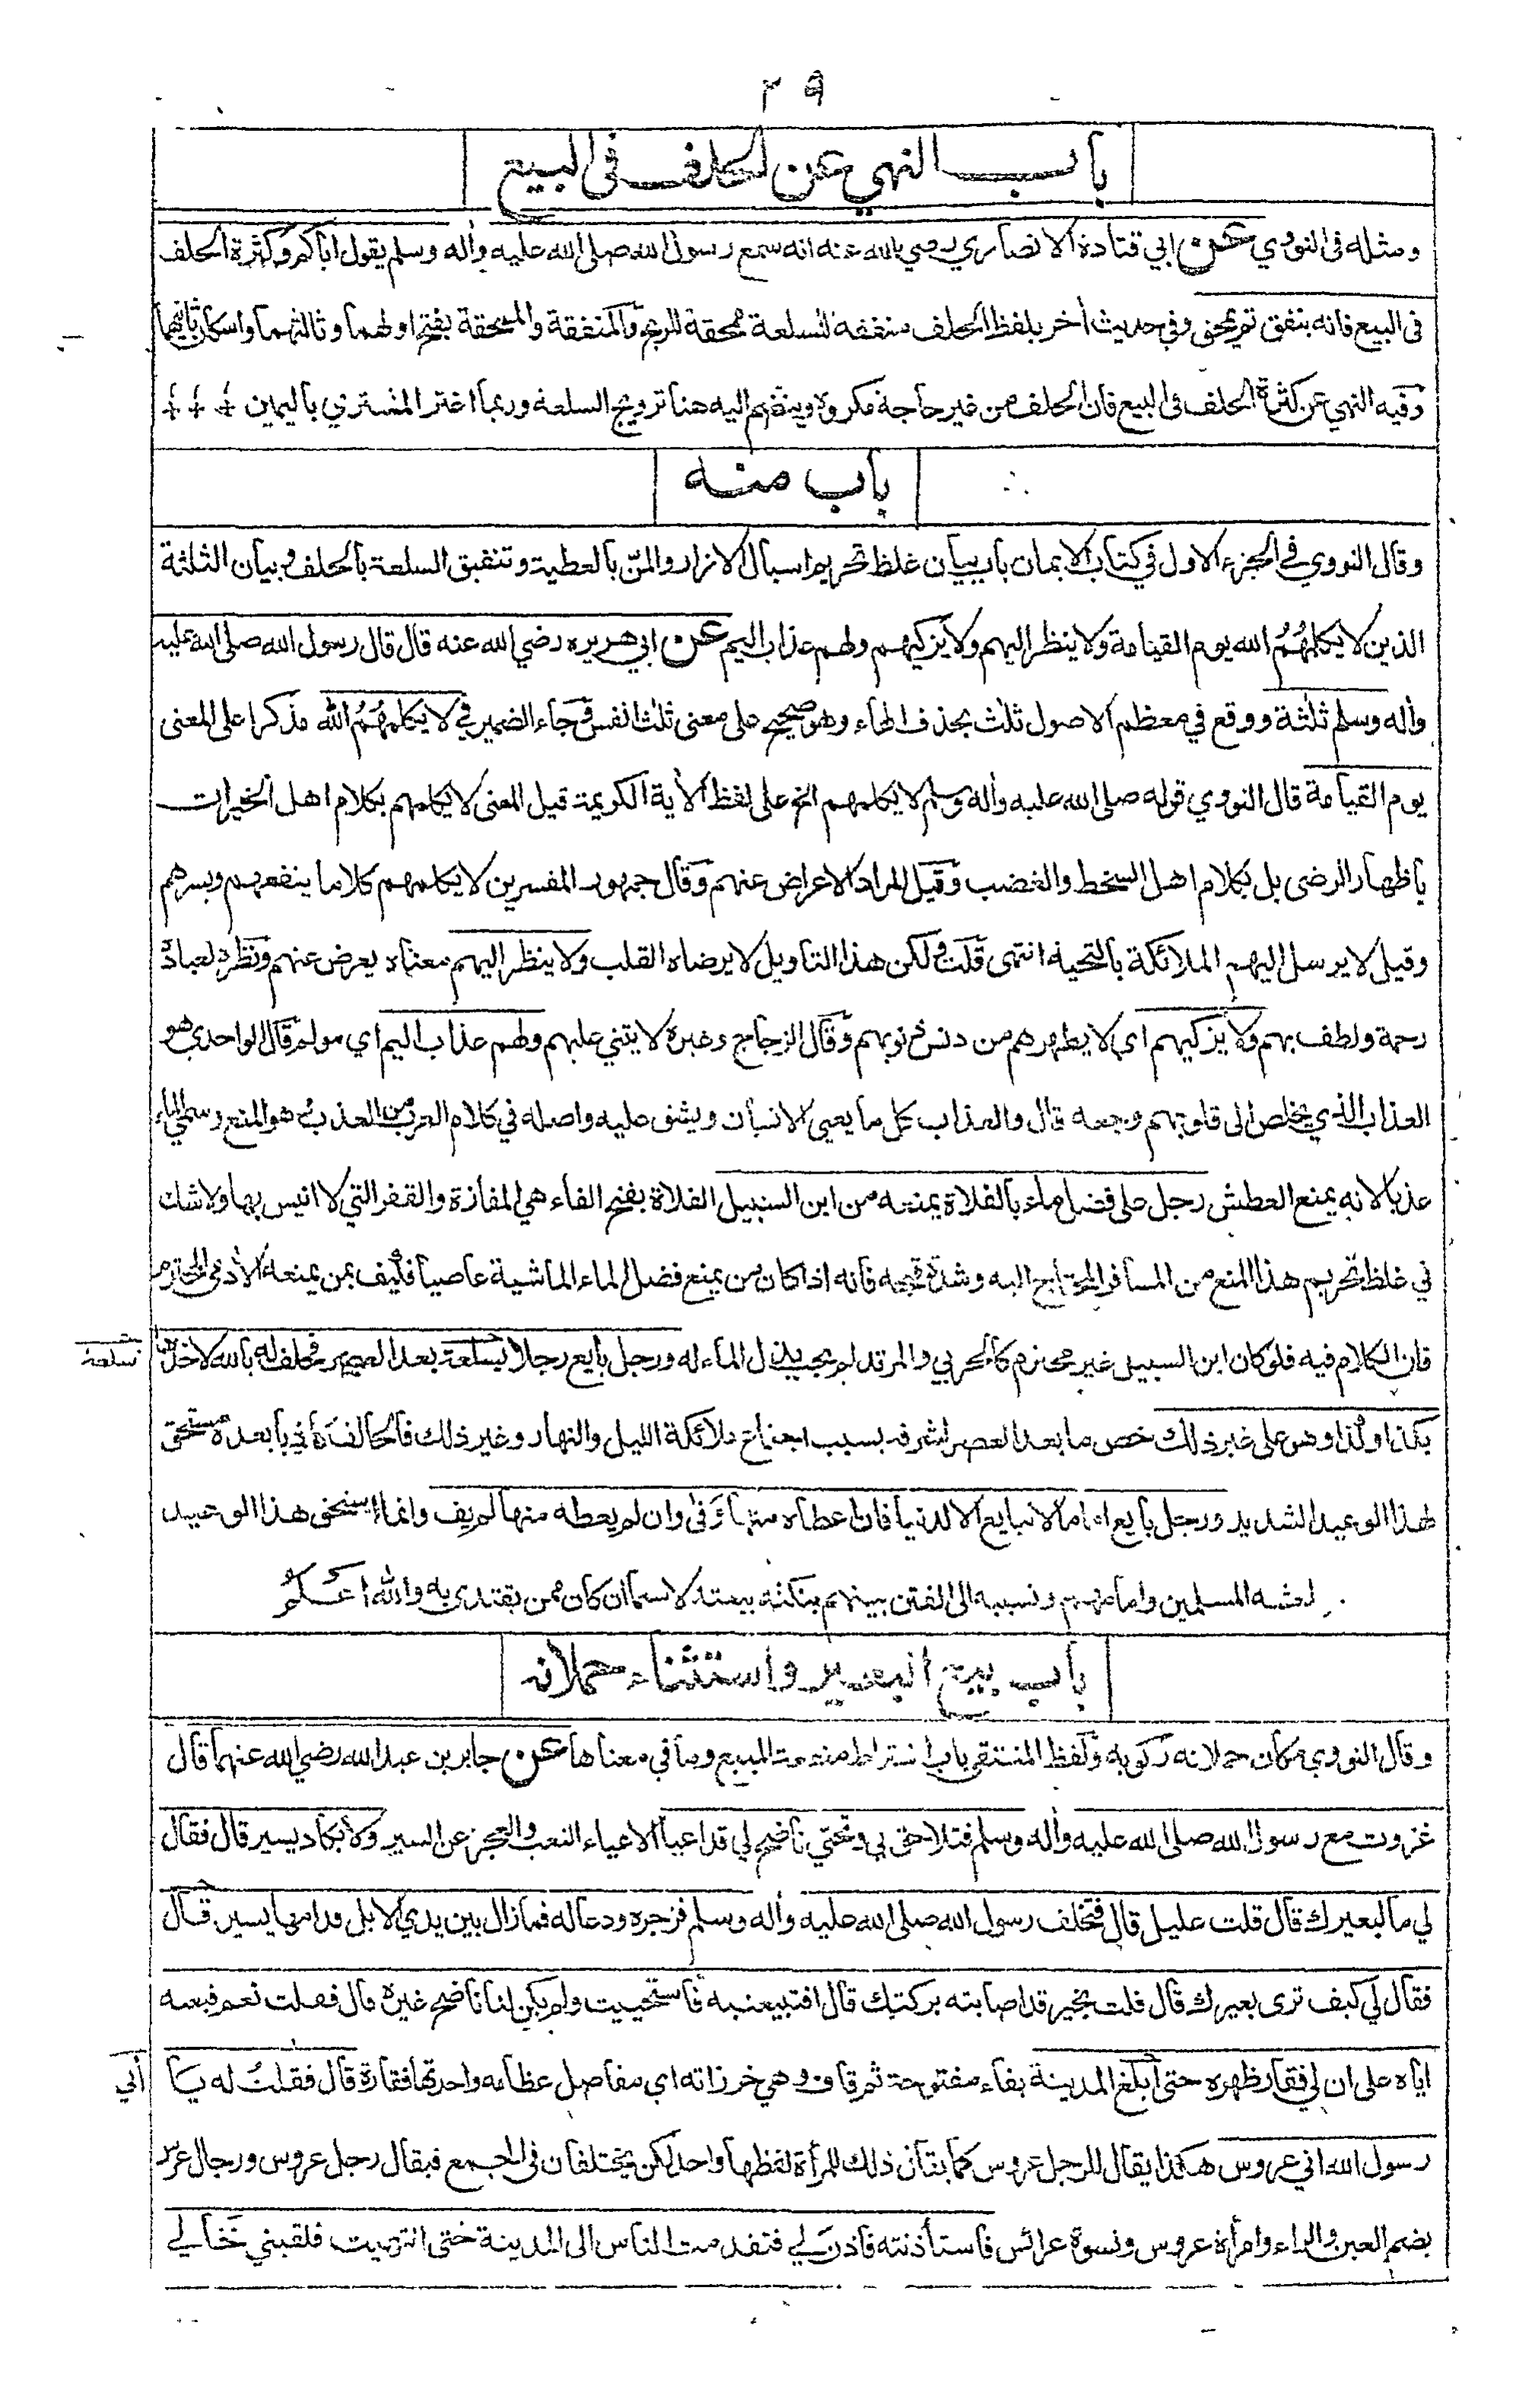 ٢٩
باب النهي عن الحلف في البيع
ومثله في النووي عن ابي قتادة الانصاري رضي الله عنه انه سمع رسول الله صلى الله عليه وأله وسلم يقول اياكم وكثرة الحلف
في البيع فانه ينفق ثم يمحق وفي حديث أخر بلفظ الحلف منفقة للسلعة ممحقة للربح والمنفقة والممحقة بفتح اولهما وثالثهما واسكان ثانيهما
وفيه النهي عن كثرة الحلف في البيع فان الحلف من غير حاجة مكروه وينضم اليه هنا ترويج السلعة وربما اغتر المشتري باليمين
باب منه
وقال النووي في الجزء الاول في كتاب الايمان باب بيان غلظ تحريم اسبال الازار والمنّ بالعطية وتنفيق السلعة بالحلف وبيان الثلثة
الذين لا يكلمهُمُ الله يوم القيامة ولا ينظر اليهم ولا يزكيهم ولهم عذاب اليم عن ابي هريره رضي الله عنه قال قال رسول الله صلى الله عليه
وأله وسلم ثلثة ووقع في معظم الاصول ثلث بحذف الهاء وهو صحيح على معنى ثلث انفس وجاء الضمير في لا يكلمهُمُ الله مذكرا على المعنى
يوم القيامة قال النووي قوله صلى الله عليه وأله وسلم لا يكلمهم الخ على لفظ الأية الكريمة قيل المعنى لا يكلمهم بكلام اهل الخيرات
باظهار الرضى بل بكلام اهل السخط والغضب وقيل المراد الاعراض عنهم وقال جمهور المفسرين لا يكلمهم كلاما ينفعهم ويسرهم
وقيل لا يرسل اليهم الملائكة بالتحية انتهى قلت ولكن هذا التاويل لا يرضاه القلب ولا ينظر اليهم معناه يعرض عنهم ونظره لعباده
رحمة ولطف بهم ولا يزكيهم اي لا يطهرهم من دنس ذنوبهم وقال الزجاج وغيره لا يثني عليهم ولهم عذاب اليم اي مولم قال الواحدي هو
العذاب الذي يخلص الى قلوبهم وجعه قال والعذاب كل ما يعيي الانسان ويشق عليه واصله في كلام العرب من العذب وهو المنع وسمي الماء
عذبا لانه يمنع العطش رجل على فضل ماء بالفلاة يمنعه من ابن السبيل الفلاة بفتح الفاء هي المفازة والقفر التي لا انيس بها ولا شك
في غلظ تحريم هذا المنع من المسافر المحتاج اليه وشدة قبحه فانه اذا كان من يمنع فضل الماء الماشية عاصيا فكيف بمن يمنعه الأدمي المحترم
فان الكلام فيه فلو كان ابن السبيل غير محترم كالحربي والمرتد لم يجب بذل الماء له ورجل بايع رجلا بسلعة بعد العصر فحلف له بالله لاخذها
سلعة
بكذا وكذا وهو على غير ذلك خص ما بعد العصر لشرفه بسبب اجتماع ملائكة الليل والنهار وغير ذلك فالحالف كاذبا بعده مستحق
لهذا الوعيد الشديد ورجل بايع اماما لا يبايع الا لدنيا فان اعطاه منها وَفى وان لم يعطه منها لم يف وانما استحق هذا الوعيد
لغشه المسلمين وامامهم وتسببه الى الفتن بينهم بنكثه بيعته لا سيما ان كان ممن يقتدى به والله اعلم
باب بيع البعير واستثناء حملانه
وقال النووي مكان حملانه ركوبه ولفظ المنتقى باب اشتراط منفعة المبيع وما في معناها عن جابر بن عبد الله رضي الله عنهما قال
غزوت مع رسول الله صلى الله عليه وأله وسلم فتلاحق بي وتحتي ناضح لي قد اعيا الاعياء التعب والعجز عن السير ولا يكاد يسير قال فقال
لي ما لبعيرك قال قلت عليل قال فتخلف رسول الله صلى الله عليه وأله وسلم فزجره ودعا له فما زال بين يدي الابل قدامها يسير قال
فقال لي كيف ترى بعيرك قال قلت بخير قد اصابته بركتك قال افتبيعنيه فاستحييت ولم يكن لنا ناضح غيره قال فقلت نعم فبعته
اياه على ان لي فقار ظهره حتى أبلغ المدينة بفاء مفتوحة ثم قاف وهي خرزاته اي مفاصل عظامه واحدتها فقارة قال فقلتُ له يا
أتي
رسول الله اني عروس هكذا يقال للرجل عروس كما يقال ذلك للمرأة لفظهما واحد لكن يختلفان في الجمع فيقال رجل عروس ورجال عرس
بضم العين والراء وامرأة عروس ونسوة عرائس فاستأذنته فاذن لي فتقدمت الناس الى المدينة حتى انتهيت فلقيني خَالي